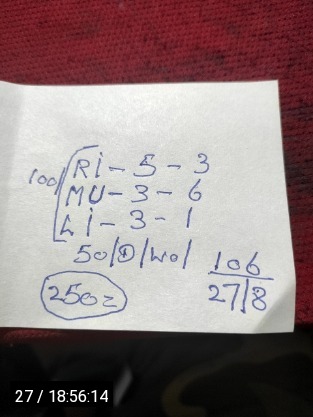 100/ RI - 5 - 3
MU - 3 - 6
LI - 3 - 1
50/D/wo/
106
250=
27/8
27 / 18:56:14